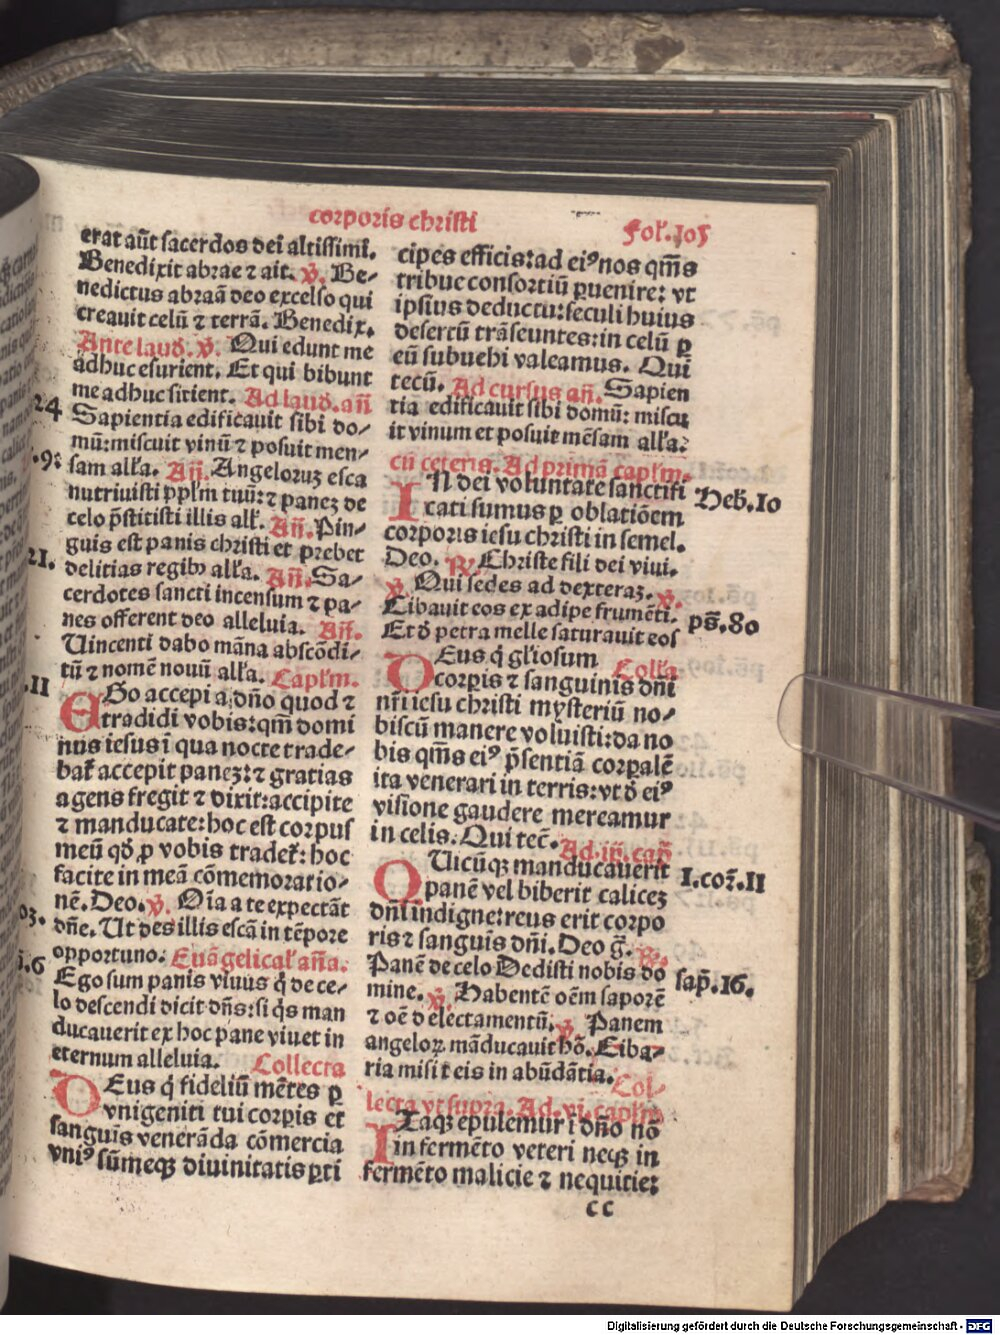 corporis christi
Fol'. 105
erat aūt sacerdos dei altissimi.
Benedixit abrae ⁊ ait. ℣. Be⸗
nedictus abraā deo excelso qui
creauit celū ⁊ terrā. Benedix.
Ante laud. ℣. Qui edunt me
adhuc esurient. Et qui bibunt
me adhuc sitient. Ad laud. añ
Sapientia edificauit sibi do⸗
mū: miscuit vinū ⁊ posuit men⸗
sam alľa. Añ. Angeloruꝫ esca
nutriuisti ppľm tuū: ⁊ paneꝫ de
celo p̄stitisti illis alľ. Añ. Pin⸗
guis est panis christi et prebet
delitias regibꝰ alľa. Añ. Sa⸗
cerdotes sancti incensum ⁊ pa⸗
nes offerent deo alleluia. Añ.
Uincenti dabo māna abscōdi⸗
tū ⁊ nomē nouū alľa. Capľm.
EGo accepi a dño quod ⁊
tradidi vobis: qm̄ domi
nus iesus ī qua nocte trade⸗
bať accepit paneꝫ: ⁊ gratias
agens fregit ⁊ dixit: accipite
⁊ manducate: hoc est corpus
meū qd̄ ꝓ vobis tradeť: hoc
facite in meā cōmemoratio⸗
nē. Deo. ℣. Oīa a te expectāt
dñe. Ut des illis escā in tēpore
opportuno. Euāgelicaľ aña.
Ego sum panis viuus q̇ de ce⸗
lo descendi dicit dñs: si q̇s man
ducauerit ex hoc pane viuet in
eternum alleluia. Collecta
DEus q̇ fideliū mētes ꝑ
vnigeniti tui corꝑis et
sanguis venerāda cōmercia
vniꝰ sūmeqꝫ diuinitatis ꝑti
cipes efficis: ad eiꝰ nos qm̄s
tribue consortiū ꝑuenire: vt
ipsius deductu: seculi huius
desertū trāseuntes: in celū ꝑ
eū subuehi valeamus. Qui
tecū. Ad cursus añ. Sapien
tia edificauit sibi domū: miscu
it vinum et posuit mēsam alľa:
cū ceteris. Ad primā capľm.
IN dei voluntate sanctifi
cati sumus ꝑ oblatiōem
corporis iesu christi in semel.
Deo. ℟. Christe fili dei viui.
℣. Qui sedes ad dexteraꝫ. ℣.
Cibauit eos ex adipe frumēti.
Et d̄ petra melle saturauit eos
DEus q̇ gľiosum Colľa
corꝑis ⁊ sanguinis dñi
nr̄i iesu christi mysteriū no⸗
biscū manere voluisti: da no
bis qm̄s eiꝰ p̄sentiā corꝑalē
ita venerari in terris: vt d̄ eiꝰ
visione gaudere mereamur
in celis. Qui tec̄. Ad. iij. cap̄
QUicūqꝫ manducauerit
panē vel biberit caliceꝫ
dñi indigne: reus erit corpo
ris ⁊ sanguīs dñi. Deo g̃. ℟.
Panē de celo Dedisti nobis do
mine. ℣. Habentē oēm saporē
⁊ oē delectamentū. ℣. Panem
angeloꝝ māducauit hō. Ciba⸗
ria misit eis in abūdātia. Col⸗
lecta vt supra. Ad. vi. capľm
ITaqꝫ epulemur ī dño nō
in fermēto veteri neqꝫ in
fermēto malicie ⁊ nequitie:
Heb. 10
ps̄. 80
1. cor. 11
sap̄. 16.
cc
Digitalisierung gefördert durch die Deutsche Forschungsgemeinschaft - DFG